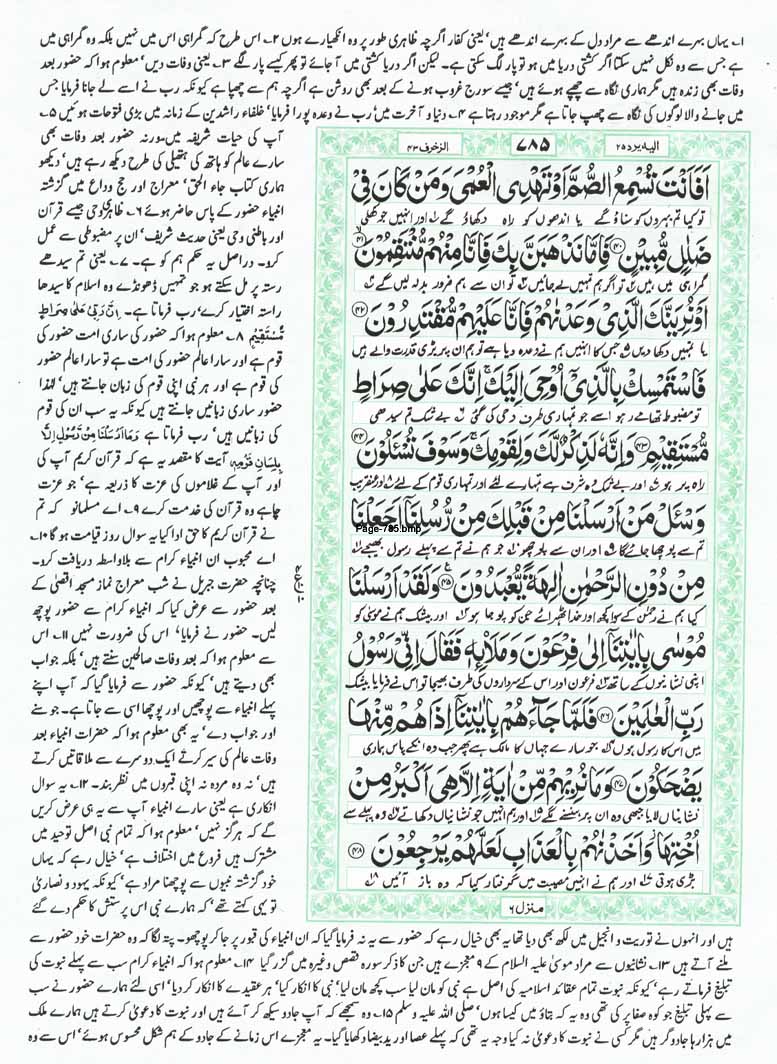 ۱۔ یہاں بہرے اندھے سے مراد دل کے بہرے اندھے ہیں، یعنی کفار اگرچہ ظاہری طور پر وہ انکھیارے ہوں ۲۔ اس طرح کہ گمراہی اس میں نہیں بلکہ وہ گمراہی میں
ہے جس سے وہ نکل نہیں سکتا اگر کشتی دریا میں ہو تو پار لگ سکتی ہے۔ لیکن اگر دریا کشتی میں آجائے تو پھر کیسے پار لگے ۳۔ یعنی وفات دیں، معلوم ہوا کہ حضور بعد
وفات بھی زندہ ہیں مگر ہماری نگاہ سے چھپے ہوئے ہیں، جیسے سورج غروب ہونے کے بعد بھی روشن ہے اگرچہ ہم سے چھپا ہے کیونکہ رب نے اسے لے جانا فرمایا جس
میں جانے والا لوگوں کی نگاہ سے چھپ جاتا ہے مگر موجود رہتا ہے ۴۔ دنیا و آخرت میں، رب نے وعدہ پورا فرمایا، خلفاء راشدین کے زمانہ میں بڑی فتوحات ہوئیں ۵۔
آپ کی حیات شریفہ میں، ورنہ حضور بعد وفات بھی
سارے عالم کو ہاتھ کی ہتھیلی کی طرح دیکھ رہے ہیں، دیکھو
ہماری کتاب جاء الحق، معراج اور حج وداع میں گزشتہ
انبیاء حضور کے پاس حاضر ہوئے ۶۔ ظاہری وحی جیسے قرآن
اور باطنی وحی یعنی حدیث شریف، ان پر مضبوطی سے عمل
کرو۔ دراصل یہ حکم ہم کو ہے۔ ۷۔ یعنی تم سیدھے
رستہ پر مل سکتے ہو جو تمہیں ڈھونڈے وہ اسلام کا سیدھا
راستہ اختیار کرے، رب فرماتا ہے۔ اِنَّ رَبِّیْ عَلٰی صِرَاطٍ
مُّسْتَقِیْمٍ ۸۔ معلوم ہوا کہ حضور کی ساری امت حضور کی
قوم ہے اور سارا عالم حضور کی امت ہے تو سارا عالم حضور
کی قوم ہے اور ہر نبی اپنی قوم کی زبان جانتے ہیں، لہٰذا
حضور ساری زبانیں جانتے ہیں کیونکہ یہ سب ان کی قوم
کی زبانیں ہیں، رب فرماتا ہے وَمَا اَرْسَلْنَا مِنْ رَّسُوْلٍ اِلَّا
بِلِسَانِ قَوْمِہٖ آیت کا مقصد یہ ہے کہ قرآن کریم آپ کی
اور آپ کے غلاموں کی عزت کا ذریعہ ہے، جو عزت
چاہے وہ قرآن کی خدمت کرے ۹۔ اے مسلمانو کہ تم
نے قرآن کریم کا حق ادا کیا یہ سوال روز قیامت ہو گا ۱۰۔
اے محبوب ان انبیاء کرام سے بلاواسطہ دریافت کرو۔
چنانچہ حضرت جبریل نے شب معراج نماز مسجد اقصیٰ کے
بعد حضور سے عرض کیا کہ انبیاء کرام سے حضور پوچھ
لیں۔ حضور نے فرمایا، اس کی ضرورت نہیں ۱۱۔ اس
سے معلوم ہوا کہ بعد وفات صالحین سنتے ہیں، بلکہ جواب
بھی دیتے ہیں، کیونکہ حضور سے فرمایا گیا کہ آپ اپنے
پہلے انبیاء سے پوچھیں اور پوچھا اسی سے جاتا ہے۔ جو سنے
اور جواب دے، یہ بھی معلوم ہوا کہ حضرات انبیاء بعد
وفات عالم کی سیر کرتے ایک دوسرے سے ملاقاتیں کرتے
ہیں، نہ وہ مردہ نہ اپنی قبروں میں نظر بند۔ ۱۲۔ یہ سوال
انکاری ہے یعنی سارے انبیاء آپ سے یہ ہی عرض کریں
گے کہ ہرگز نہیں، معلوم ہوا کہ تمام نبی اصل توحید میں
مشترک ہیں فروع میں اختلاف ہے، خیال رہے کہ یہاں
خود گزشتہ نبیوں سے پوچھنا مراد ہے، کیونکہ یہود و نصاریٰ
تو یہی کہتے تھے، کہ ہمارے نبی اس پرستش کا حکم دے گئے
الیہ یرد ۲۵
۷۸۵
الزخرف ۴۳
اَفَاَنْتَ تُسْمِعُ الصُّمَّ اَوْ تَهْدِی الْعُمْیَ وَمَنْ كَانَ فِیْ
تو کیا تم بہروں کو سناؤ گے یا اندھوں کو راہ دکھاؤ گے ۱ اور انہیں جو کھلی
ضَلٰلٍ مُّبِیْنٍ ﴿۴۰﴾ فَاِمَّا نَذْهَبَنَّ بِكَ فَاِنَّا مِنْهُمْ مُّنْتَقِمُوْنَ ﴿۴۱﴾
گمراہی میں ہیں ۲ تو اگر ہم تمہیں لے جائیں ۳ تو ان سے ہم ضرور بدلہ لیں گے ۴
اَوْ نُرِیَنَّكَ الَّذِیْ وَعَدْنٰهُمْ فَاِنَّا عَلَیْهِمْ مُّقْتَدِرُوْنَ ﴿۴۲﴾
یا تمہیں دکھا دیں ۵ جس کا انہیں ہم نے وعدہ دیا ہے تو ہم ان پر بڑی قدرت والے ہیں
فَاسْتَمْسِكْ بِالَّذِیْۤ اُوْحِیَ اِلَیْكَ ۚ اِنَّكَ عَلٰی صِرَاطٍ
تو مضبوط تھامے رہو اسے جو تمہاری طرف وحی کی گئی ۶ بے شک تم سیدھی
مُّسْتَقِیْمٍ ﴿۴۳﴾ وَاِنَّهٗ لَذِكْرٌ لَّكَ وَلِقَوْمِكَ ۚ وَسَوْفَ تُسْئَلُوْنَ ﴿۴۴﴾
راہ پر ہو ۷ اور بے شک وہ شرف ہے تمہارے لئے اور تمہاری قوم کے لئے ۸ اور عنقریب
وَسْئَلْ مَنْ اَرْسَلْنَا مِنْ قَبْلِكَ مِنْ رُّسُلِنَاۤ اَجَعَلْنَا
Page-785.bmp
تم سے پوچھا جائے گا ۹ اور ان سے پوچھو ۱۰ جو ہم نے تم سے پہلے رسول بھیجے ۱۱
مِنْ دُوْنِ الرَّحْمٰنِ اٰلِهَةً یُّعْبَدُوْنَ ﴿۴۵﴾ وَلَقَدْ اَرْسَلْنَا
کیا ہم نے رحمٰن کے سوا کچھ اور خدا ٹھہرائے جن کو پوجا ہو ۱۲ اور بیشک ہم نے موسیٰ کو
مُوْسٰی بِاٰیٰتِنَاۤ اِلٰی فِرْعَوْنَ وَمَلَا۟ئِهٖ فَقَالَ اِنِّیْ رَسُوْلُ
اپنی نشانیوں کے ساتھ ۱۳ فرعون اور اس کے سرداروں کی طرف بھیجا تو اس نے فرمایا بیشک
رَبِّ الْعٰلَمِیْنَ ﴿۴۶﴾ فَلَمَّا جَآءَهُمْ بِاٰیٰتِنَاۤ اِذَا هُمْ مِّنْهَا
میں اس کا رسول ہوں ۱۴ جو سارے جہاں کا مالک ہے پھر جب وہ انکے پاس ہماری
یَضْحَكُوْنَ ﴿۴۷﴾ وَمَا نُرِیْهِمْ مِّنْ اٰیَةٍ اِلَّا هِیَ اَكْبَرُ مِنْ
نشانیاں لایا جبھی وہ ان پر ہنسنے لگے ۱۵ اور ہم انہیں جو نشانیاں دکھاتے ۱۶ وہ پہلے سے
اُخْتِهَا ۫ وَاَخَذْنٰهُمْ بِالْعَذَابِ لَعَلَّهُمْ یَرْجِعُوْنَ ﴿۴۸﴾
بڑی ہوتی ۱۷ اور ہم نے انہیں مصیبت میں گرفتار کیا کہ وہ باز آئیں ۱۸
منزل ۶
ہیں اور انہوں نے توریت و انجیل میں لکھ بھی دیا تھا یہ بھی خیال رہے کہ حضور سے یہ نہ فرمایا گیا کہ ان انبیاء کی قبور پر جا کر پوچھو۔ پتہ لگا کہ وہ حضرات خود حضور سے
ملنے آتے ہیں ۱۳۔ نشانیوں سے مراد موسیٰ علیہ السلام کے ۹ معجزے ہیں جن کا ذکر سورہ قصص وغیرہ میں گزر گیا ۱۴۔ معلوم ہوا کہ انبیاء کرام سب سے پہلے نبوت کی
تبلیغ فرماتے رہے، کیونکہ نبوت تمام عقائد اسلامیہ کی اصل ہے نبی کو مان لیا سب کچھ مان لیا، نبی کا انکار کیا، ہر عقیدے کا انکار کر دیا، اسی لئے ہمارے حضور نے سب
سے پہلی تبلیغ جو کوہ صفا پر کی تھی وہ یہ کہ بتاؤ میں کیسا ہوں، صلی اللہ علیہ وسلم ۱۵۔ وہ سمجھے کہ آپ جادو سیکھ کر آئے ہیں اور نبوت کا دعویٰ کرتے ہیں ہمارے ملک
میں ہزارہا جادوگر ہیں مگر کسی نے نبوت کا دعویٰ نہ کیا وجہ یہ تھی کہ پہلے عصا اور ید بیضا دکھایا گیا۔ یہ معجزے اس زمانے کے جادو کے ہم شکل محسوس ہوئے، اس سے وہ